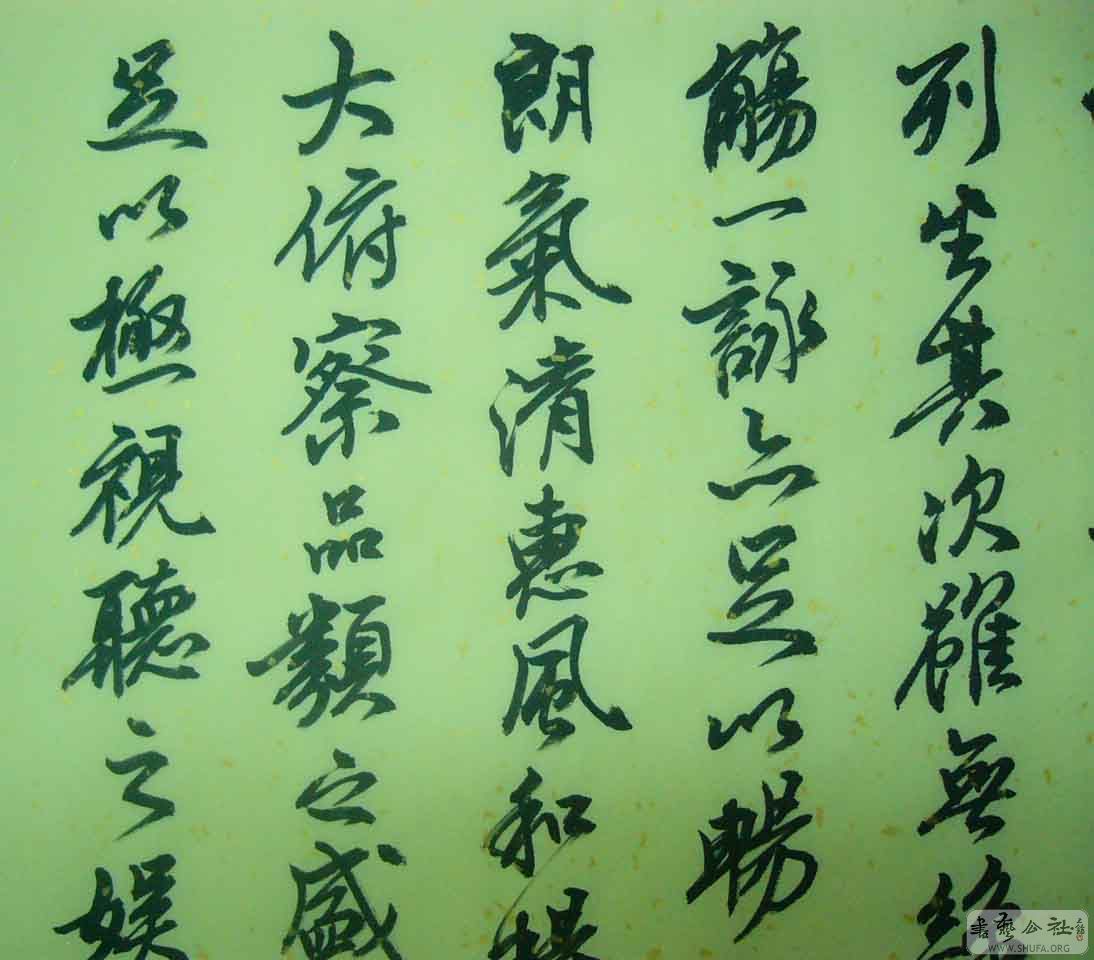 列坐其次雖無絲
觴一詠亦足以暢
朗氣清惠風和暢
大俯察品類之盛
足以極視聽之娛
書藝公社
WWW.SHUFA.ORG